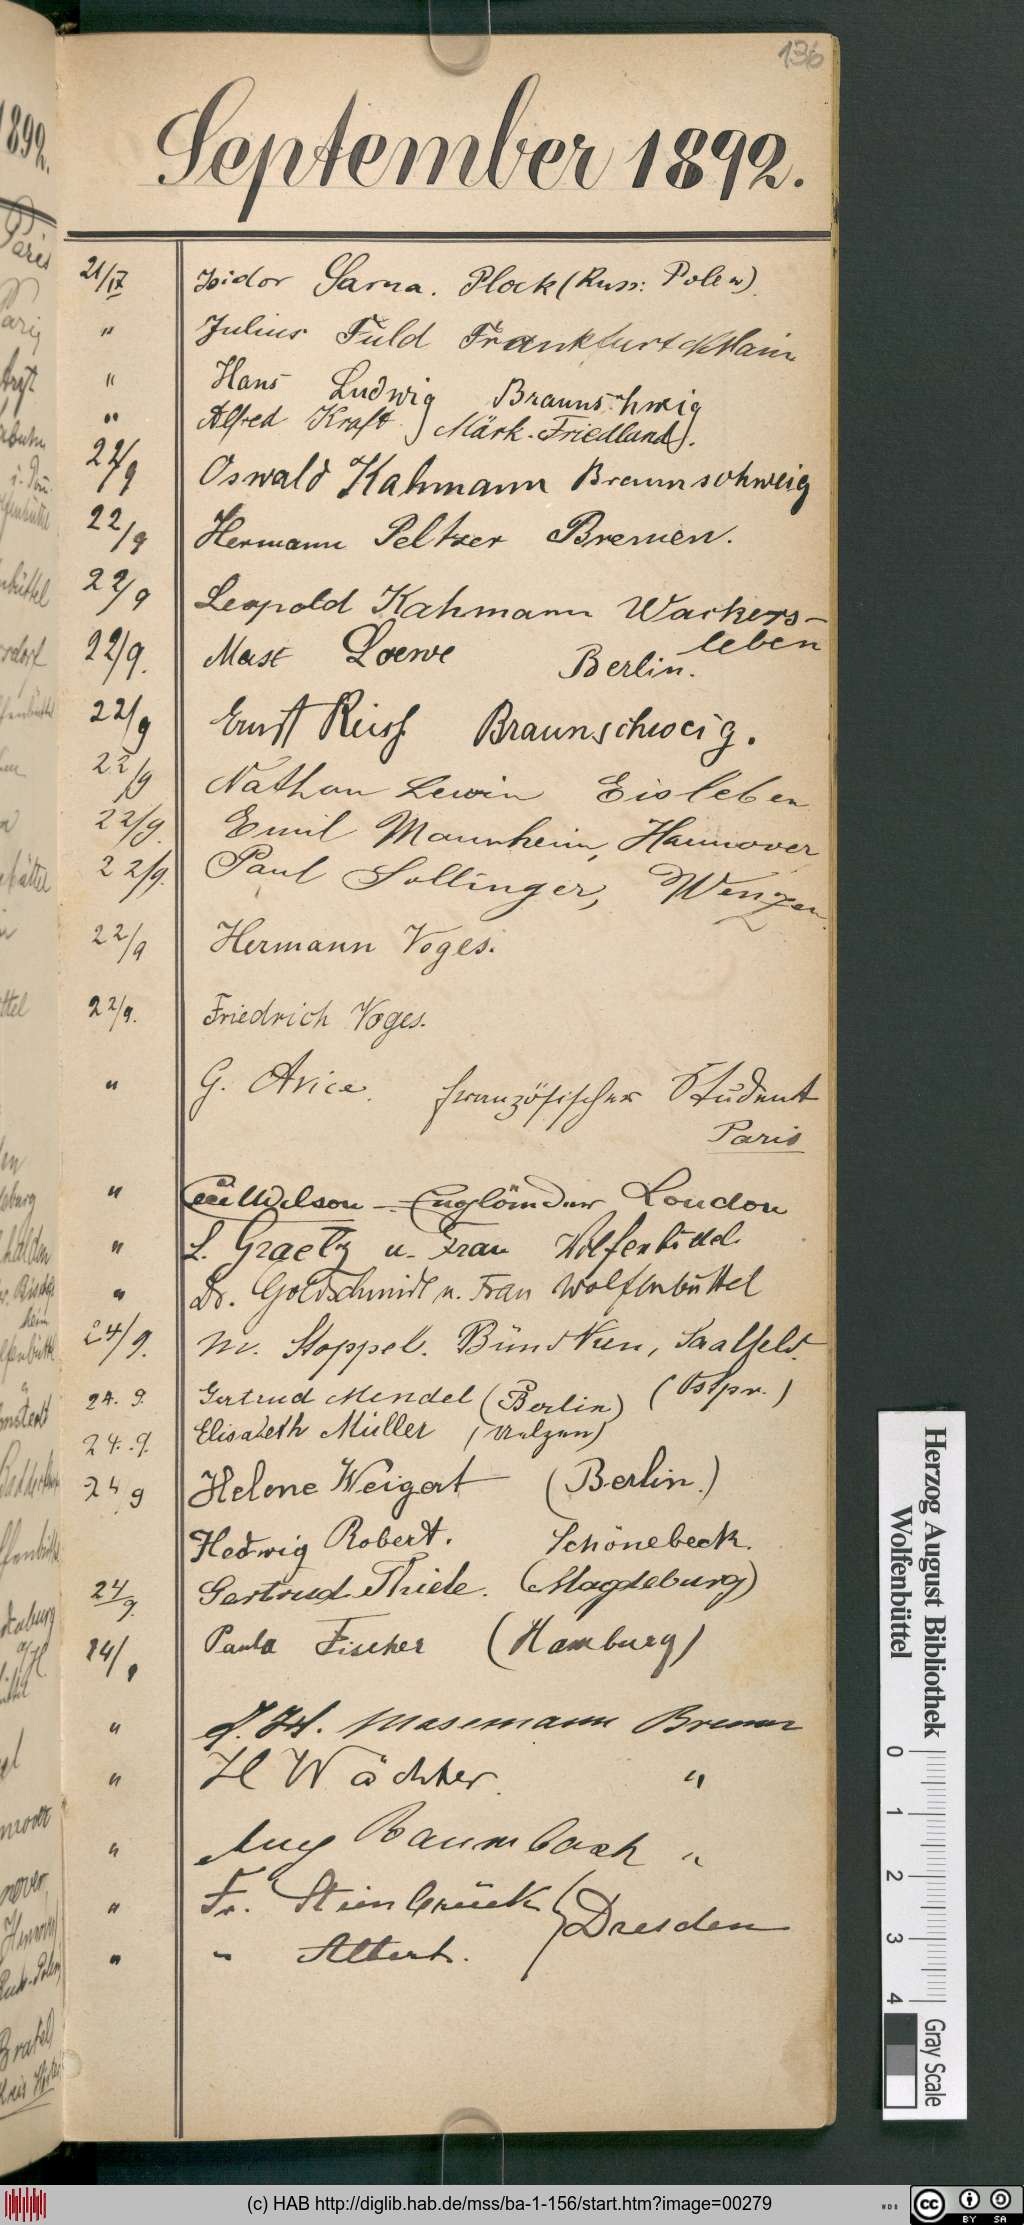 136
September 1892.
21/IX Isidor Sarna. Plock (Russ: Polen)
" Julius Fuld Frankfurt a/Main
" Hans Ludwig Braunschweig
" Alfred Kraft Märk. Friedland.
22/9 Oswald Kahmann Braunschweig
22/9 Hermann Peltzer Bremen.
22/9 Leopold Kahmann Wackers-
leben
22/9. Max Loewe Berlin.
22/9 Ernst Reiss Braunschweig.
22/9 Nathan Lewin Eisleben
22/9. Emil Mannheim, Hannover
22/9. Paul Sollinger, Wenzen.
22/9 Hermann Voges.
22/9. Friedrich Voges.
" G. Avice. französischer Student
Paris
" Cecil Wilson - Engländer London
" L. Graetz u. Frau Wolfenbüttel
" Dr. Goldschmidt u. Frau Wolfenbüttel
24/9. M. Stoppel. Saalfeld.
(Ostpr.)
24. 9. Gertrud Mendel (Berlin)
24. 9. Elisabeth Müller (Uelzen)
24 9 Helene Weigert (Berlin.)
Hedwig Robert. Schönebeck.
24/9. Gertrud Thiele. (Magdeburg)
24/9 Paula Fischer (Hamburg)
" Masemann Bremen
" H Wächter. "
" Aug Baumbach "
" Fr. Steinbrück } Dresden
" " Altert.
Herzog August Bibliothek
Wolfenbüttel
0 1 2 3 4
Gray Scale
(c) HAB http://diglib.hab.de/mss/ba-1-156/start.htm?image=00279
WDB
cc BY SA